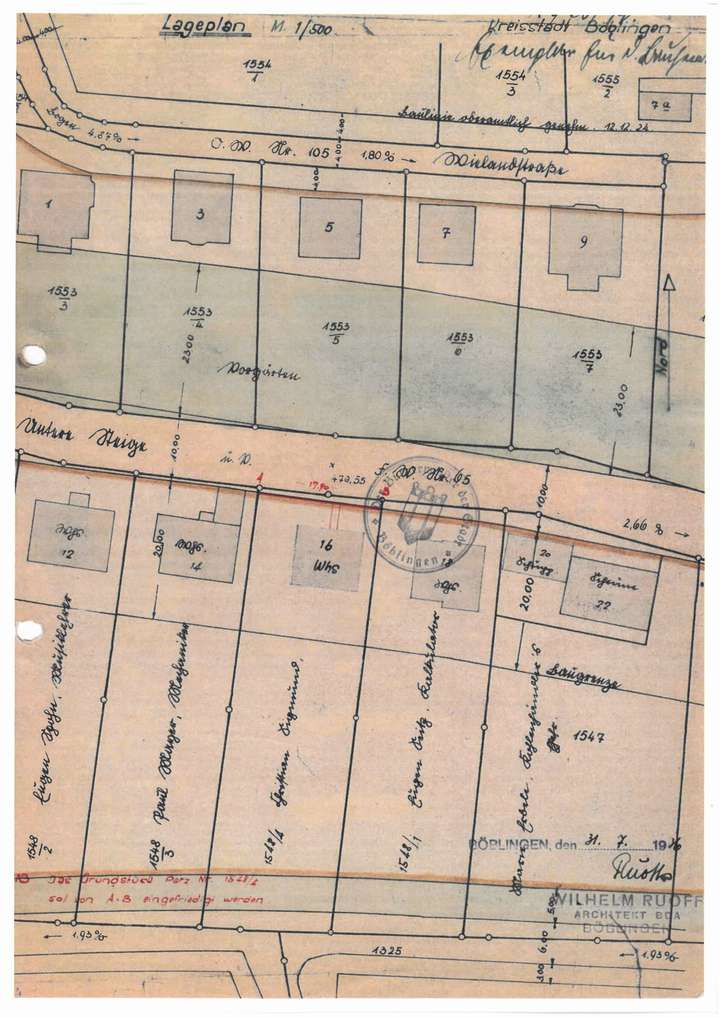 Lageplan M. 1/500
Kreisstadt Böblingen
Exemplar für d. Bauherrn
1554
1
1554
3
1555
2
7a
Baulinie oberamtlich genehm. 12.12.24.
4.00
4.00
4.00
Bogen 4.87%
O.W. Nr. 105 1,80%
Wielandstraße
1
3
5
7
9
1553
3
1553
4
1553
5
1553
6
1553
7
23.00
23.00
Nord
Vorgärten
Untere Steige
10,00
10,00
ü. P.
O.W. Nr. 65
2,66 %
A
B
Whs.
12
Whs.
14
16
Whs.
20
Schupp.
Scheune
22
20,00
20,00
Baugrenze
Eugen Spohn, Musiklehrer
Paul Mayer, Mechaniker
Christian Sigmund,
Eugen Seitz, Kalkulator
1547
1548
2
1548
3
1548/4
1548/1
Böblingen
BÖBLINGEN, den 31. 7. 19
Ruoff
WILHELM RUOFF
ARCHITEKT BDA
BÖBLINGEN
Das Grundstück Parz. Nr. 1548/4
soll von A-B eingefriedigt werden
1.93%
1325
1.93%
5.00
6.00
3.00